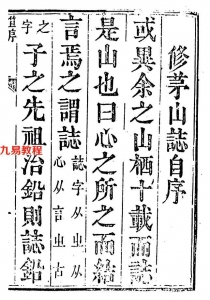 修茅山誌自序
或異余之山栖十載而誌
是山也曰心之所之而結
言焉之謂誌誌字从㞢心从言㞢古
之字子之先祖治鉛則誌鉛
序
九易教程